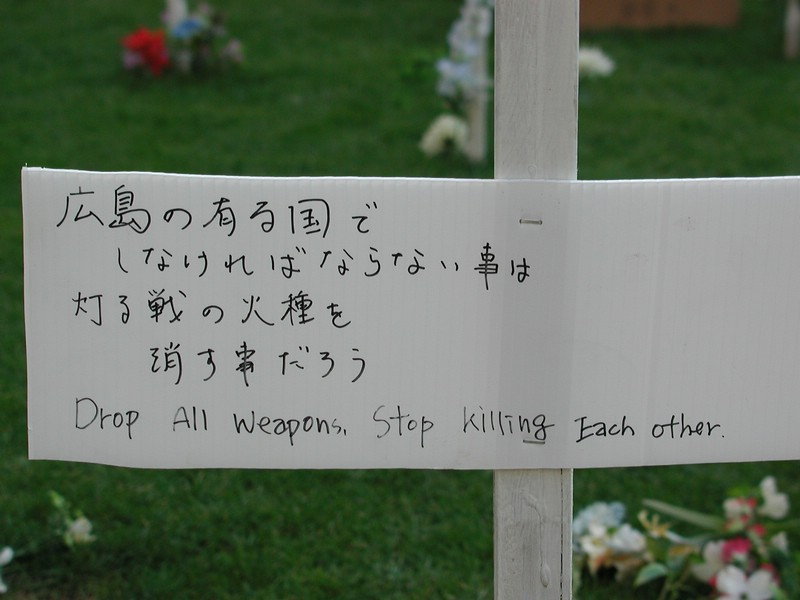 広島の有る国で
しなければならない事は
灯る戦の火種を
消す事だろう
Drop All Weapons. Stop Killing Each other.